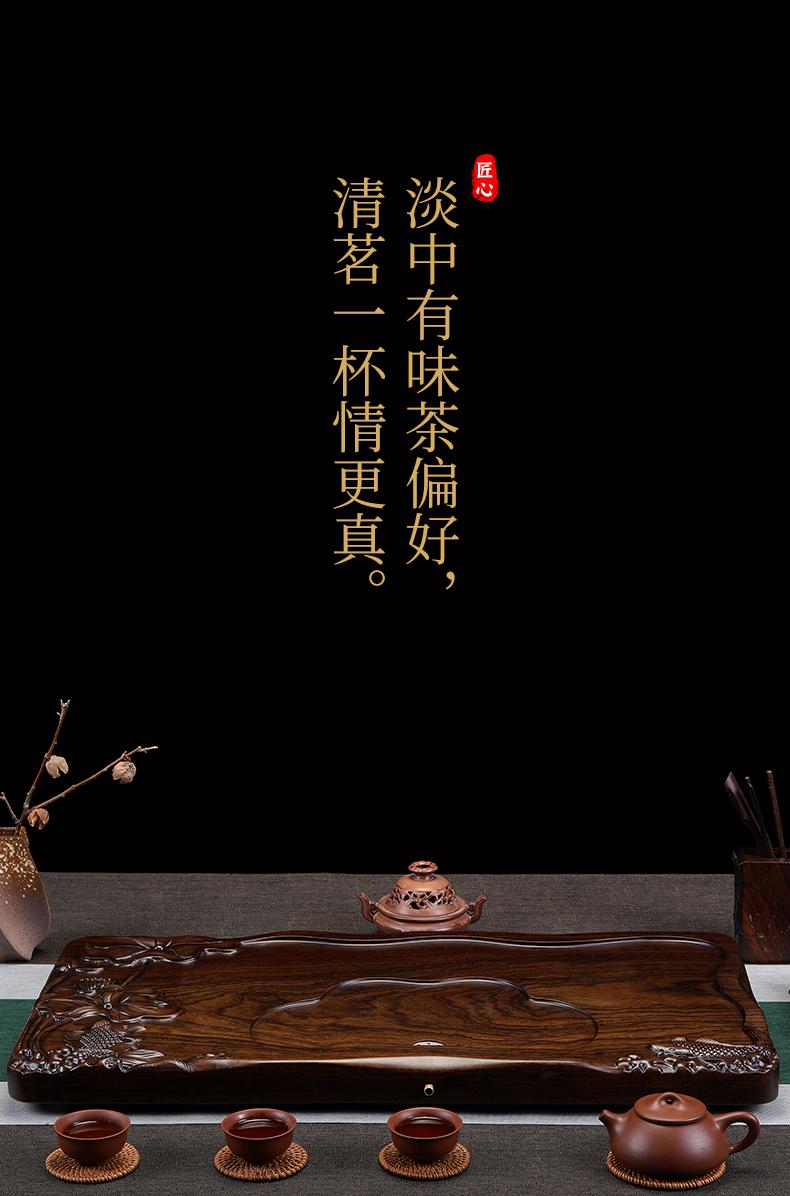 匠心
淡中有味茶偏好，
清茗一杯情更真。